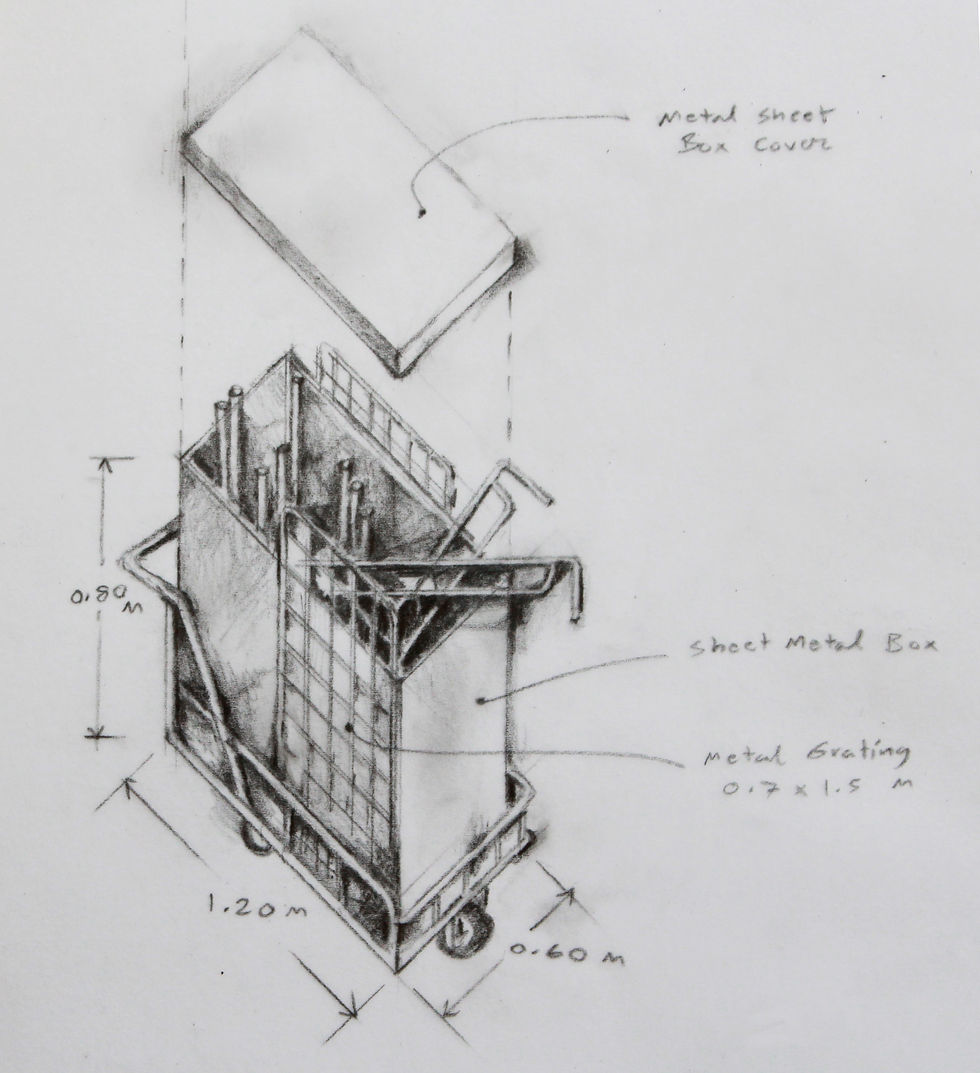 Metal sheet
Box Cover
0.80
M
sheet Metal Box
Metal Grating
0.7 x 1.5 M
1.20 M
0.60 M